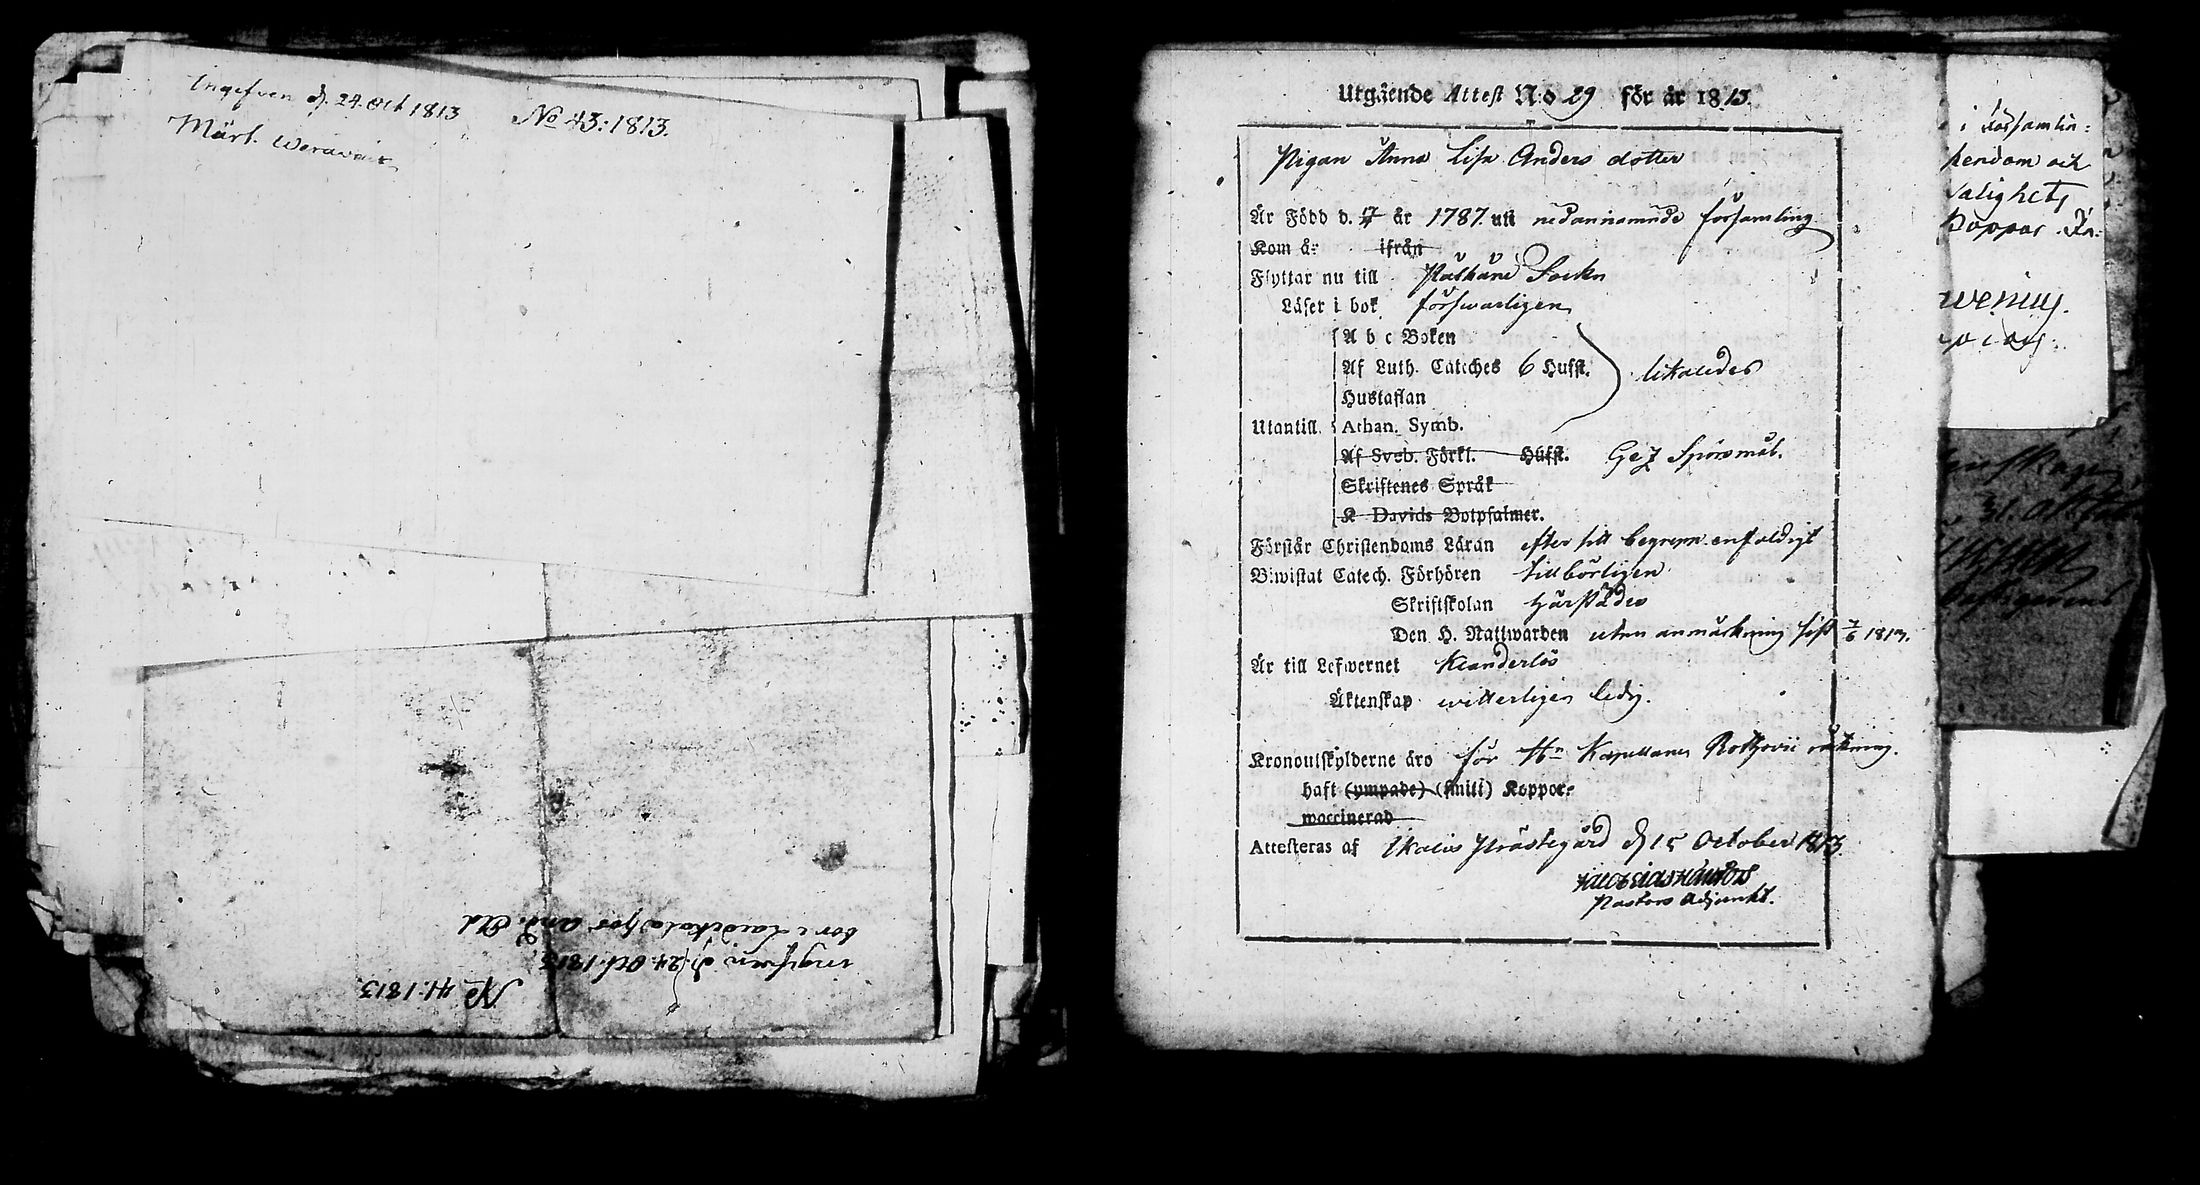 Ingifven d. 24 Oct 1813
No 43:1813.
Märt.
No 41:1813.
ingifven d. 24. Oct. 1813.
bor i hos And. Ols
Utgäende Attest N:o 29 för år 1813.
Pigan Anna Lisa Anders dotter
Är Född d. år 1787. uti nedannämnde församling
Kom år ifrån
Flyttar nu till Pälkäne Sockn
Läser i bok försvarligen
A b c Boken
Af Luth. Cateches 6 Hufst. likaledes
Hustaflan
Utantill Athan. Symb.
Af Sveb. Förkl. Hufst. Gez Spörsmål.
Skriftenes Språk
K Davids Botpsalmer.
Förstår Christendoms Läran efter sitt begrepp enfaldigt
Biwistat Catech. Förhören tillbörligen
Skriftskolan härstädes
Den H. Nattwarden utan anmärkning sist 7/6 1813.
Är till Lefwernet klanderlös
Äktenskap witterligen ledig.
Kronoutskylderne äro för Hr Kapellanen räkning.
haft (ympade) (smitt) Koppor.
waccinerad
Attesteras af Ikalis Prästegård d 15 October 1813.
Pastors Adjunkt.
i Församlin:
tendom och
valighet,
Koppor.